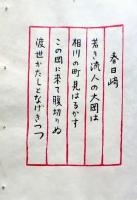 春日崎
若き流人の大岡は
相川の町見はるかす
この岡に来て腹切りぬ
渡世かたしとなげきつつ